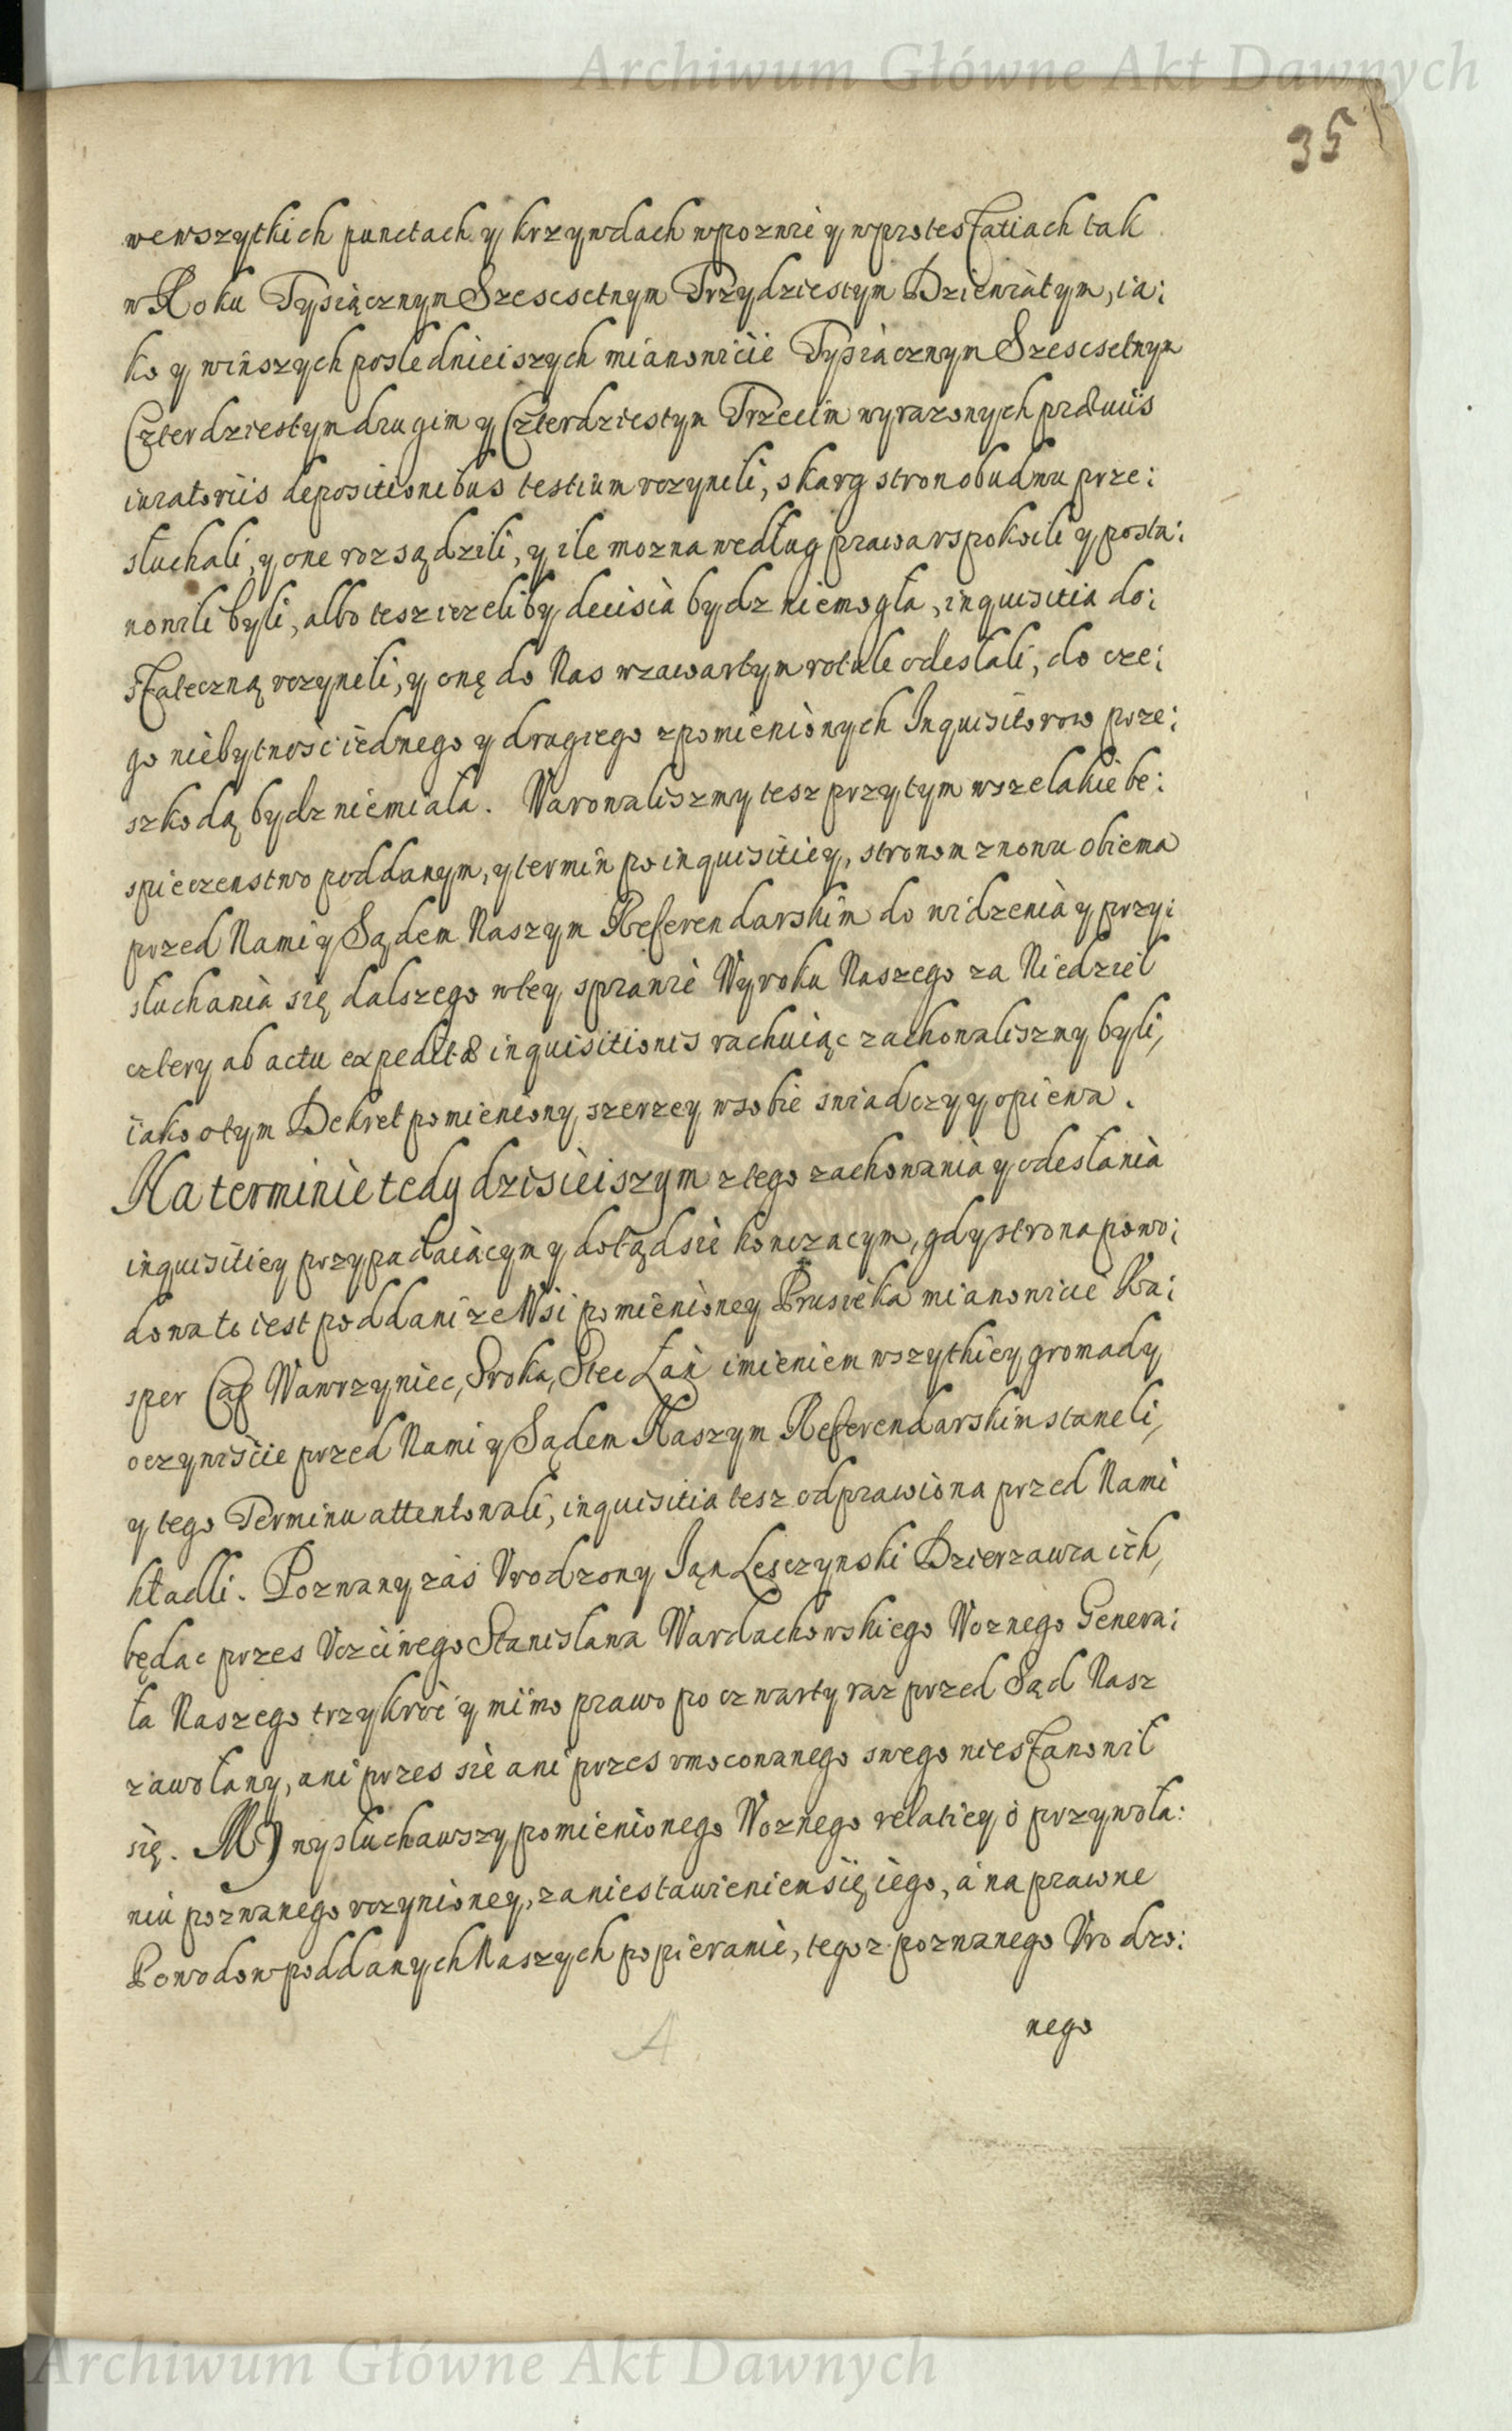 Archiwum Główne Akt Dawnych
35
wewszytkich punctach y krzywdach wpozwie y wprotestatiach tak
w Roku Tysiącznym Szescsetnym Trzydziestym Dziewiatym, ia:
ko y winszych poslednieiszych mianowicie Tysiącznym Szescsetnym
Czterdziestym drugim y Czterdziestym Trzecim wyrazonych præviis
iuratoriis depositionibus testium vczynili, skarg stron obudwu prze:
słuchali, y one rozsądzili, y ile mozna według prawa vspokoili y posta:
nowili byli, albo tesz iezeliby decisia bydz niemogła, inquisitia do:
stateczną vczynili, y onę do Nas wzawartym rotule odesłali, do cze:
go niebytność iednego y drugiego zpomienionych Inquisitorow prze:
szkodą bydz niemiała. Warowaliszmy tesz przytym wszelakie be:
spieczenstwo poddanym, y termin po inquisitiey, stronom znowu obiema
przed Nami y Sądem Naszym Referendarskim do widzenia y przy:
słuchania się dalszego wtey sprawie Wyroku Naszego za Niedziel
cztery ab actu expeditæ inquisitionis rachuiąc zachowaliszmy byli,
iako otym Dekret pomieniony szerzey wsobie swiadczy y opiewa.
Na terminie tedy dzisieiszym ztego zachowania y odesłania
inquisitiey przypadaiącym y dotąd sie konczacym, gdy strona powo:
dowa to iest poddani ze Wsi pomienioney Prusieka mianowicie Ka:
sper Cap Wawrzyniec, Sroka, Stec Łań imieniem wszytkiey gromady
oczywiście przed Nami y Sądem Naszym Referendarskim staneli,
y tego Terminu attentowali, inquisitia tesz odprawiona przed Nami
kładli. Pozwany zaś Vrodzony Jąn Lesczynski Dzierzawca ich,
będac przes Vczciwego Stanislawa Wardachowskiego Woznego Genera:
ła Naszego trzykroć y mimo prawo po czwarty raz przed Sąd Nasz
zawołany, ani przes sie ani przes vmocowanego swego niestanowił
się. My wysłuchawszy pomienionego Woznego relatiey o przywoła:
niu pozwanego vczynioney, zaniestawieniem się iego, a na prawne
Powodow poddanych Naszych popieranie, tegoz pozwanego Vrodzo:
nego
Archiwum Główne Akt Dawnych